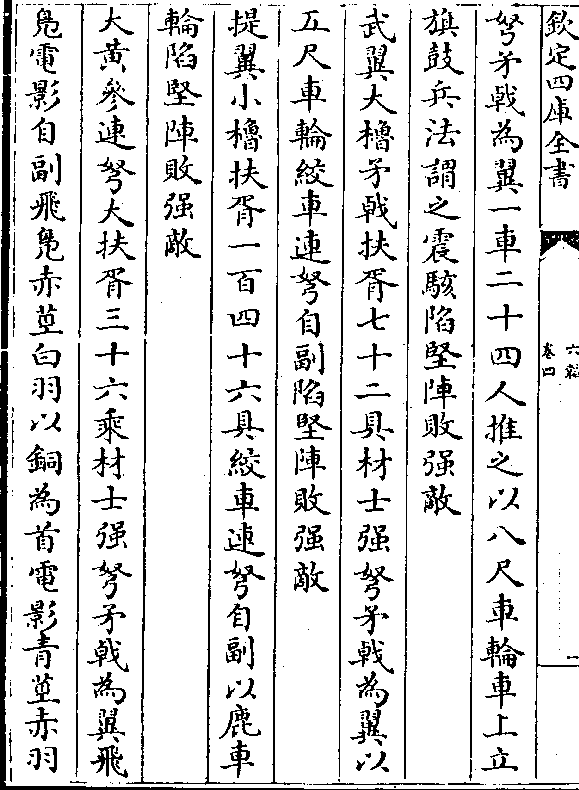 欽定四庫全書
六韜
卷四
一
弩矛戟為翼一車二十四人推之以八尺車輪車上立
旗鼓兵法謂之震駭陷堅陣敗强敵
武翼大櫓矛戟扶胥七十二具材士强弩矛戟為翼以
五尺車輪絞車連弩自副陷堅陣敗强敵
提翼小櫓扶胥一百四十六具絞車連弩自副以鹿車
輪陷堅陣敗强敵
大黃參連弩大扶胥三十六乘材士强弩矛戟為翼飛
鳬電影自副飛鳬赤莖白羽以銅為首電影青莖赤羽